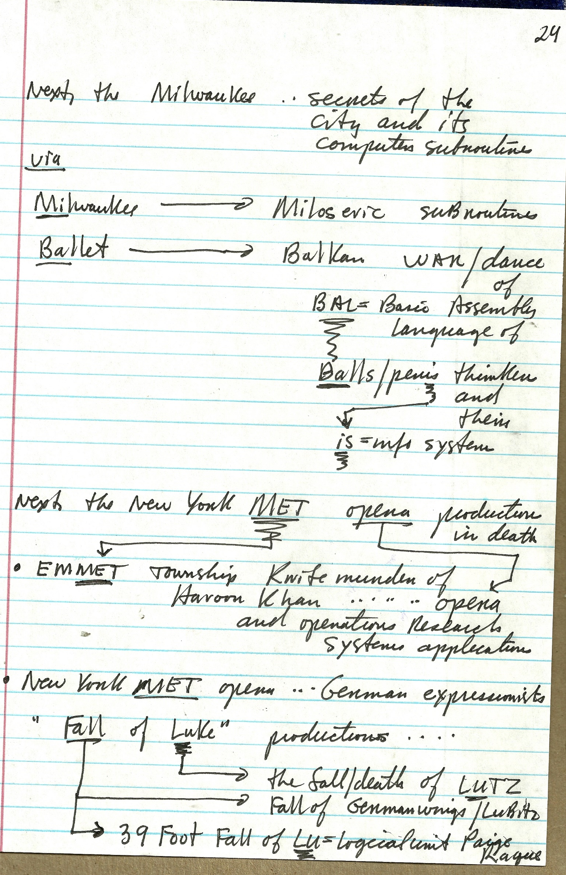 24
Next, the Milwaukee .. secrets of the
city and its
computer subroutines
via
Milwaukee → Milosevic subroutines
Ballet → Balkan WAR/dance
of
BAL = Basic Assembly
Language of
Balls/penis thinker
and
their
is = info system
Next, the New York MET opera production
in death
• EMMET Township Knife murder of
Haroon Khan ..... opera
and operations Research
Systems application
• New York MET opera ... German expressionists
"Fall of Luke" productions ....
the fall/death of LUTZ
Fall of Germanwings/Lubitz
39 Foot Fall of LU = Logical unit Paige
Raque